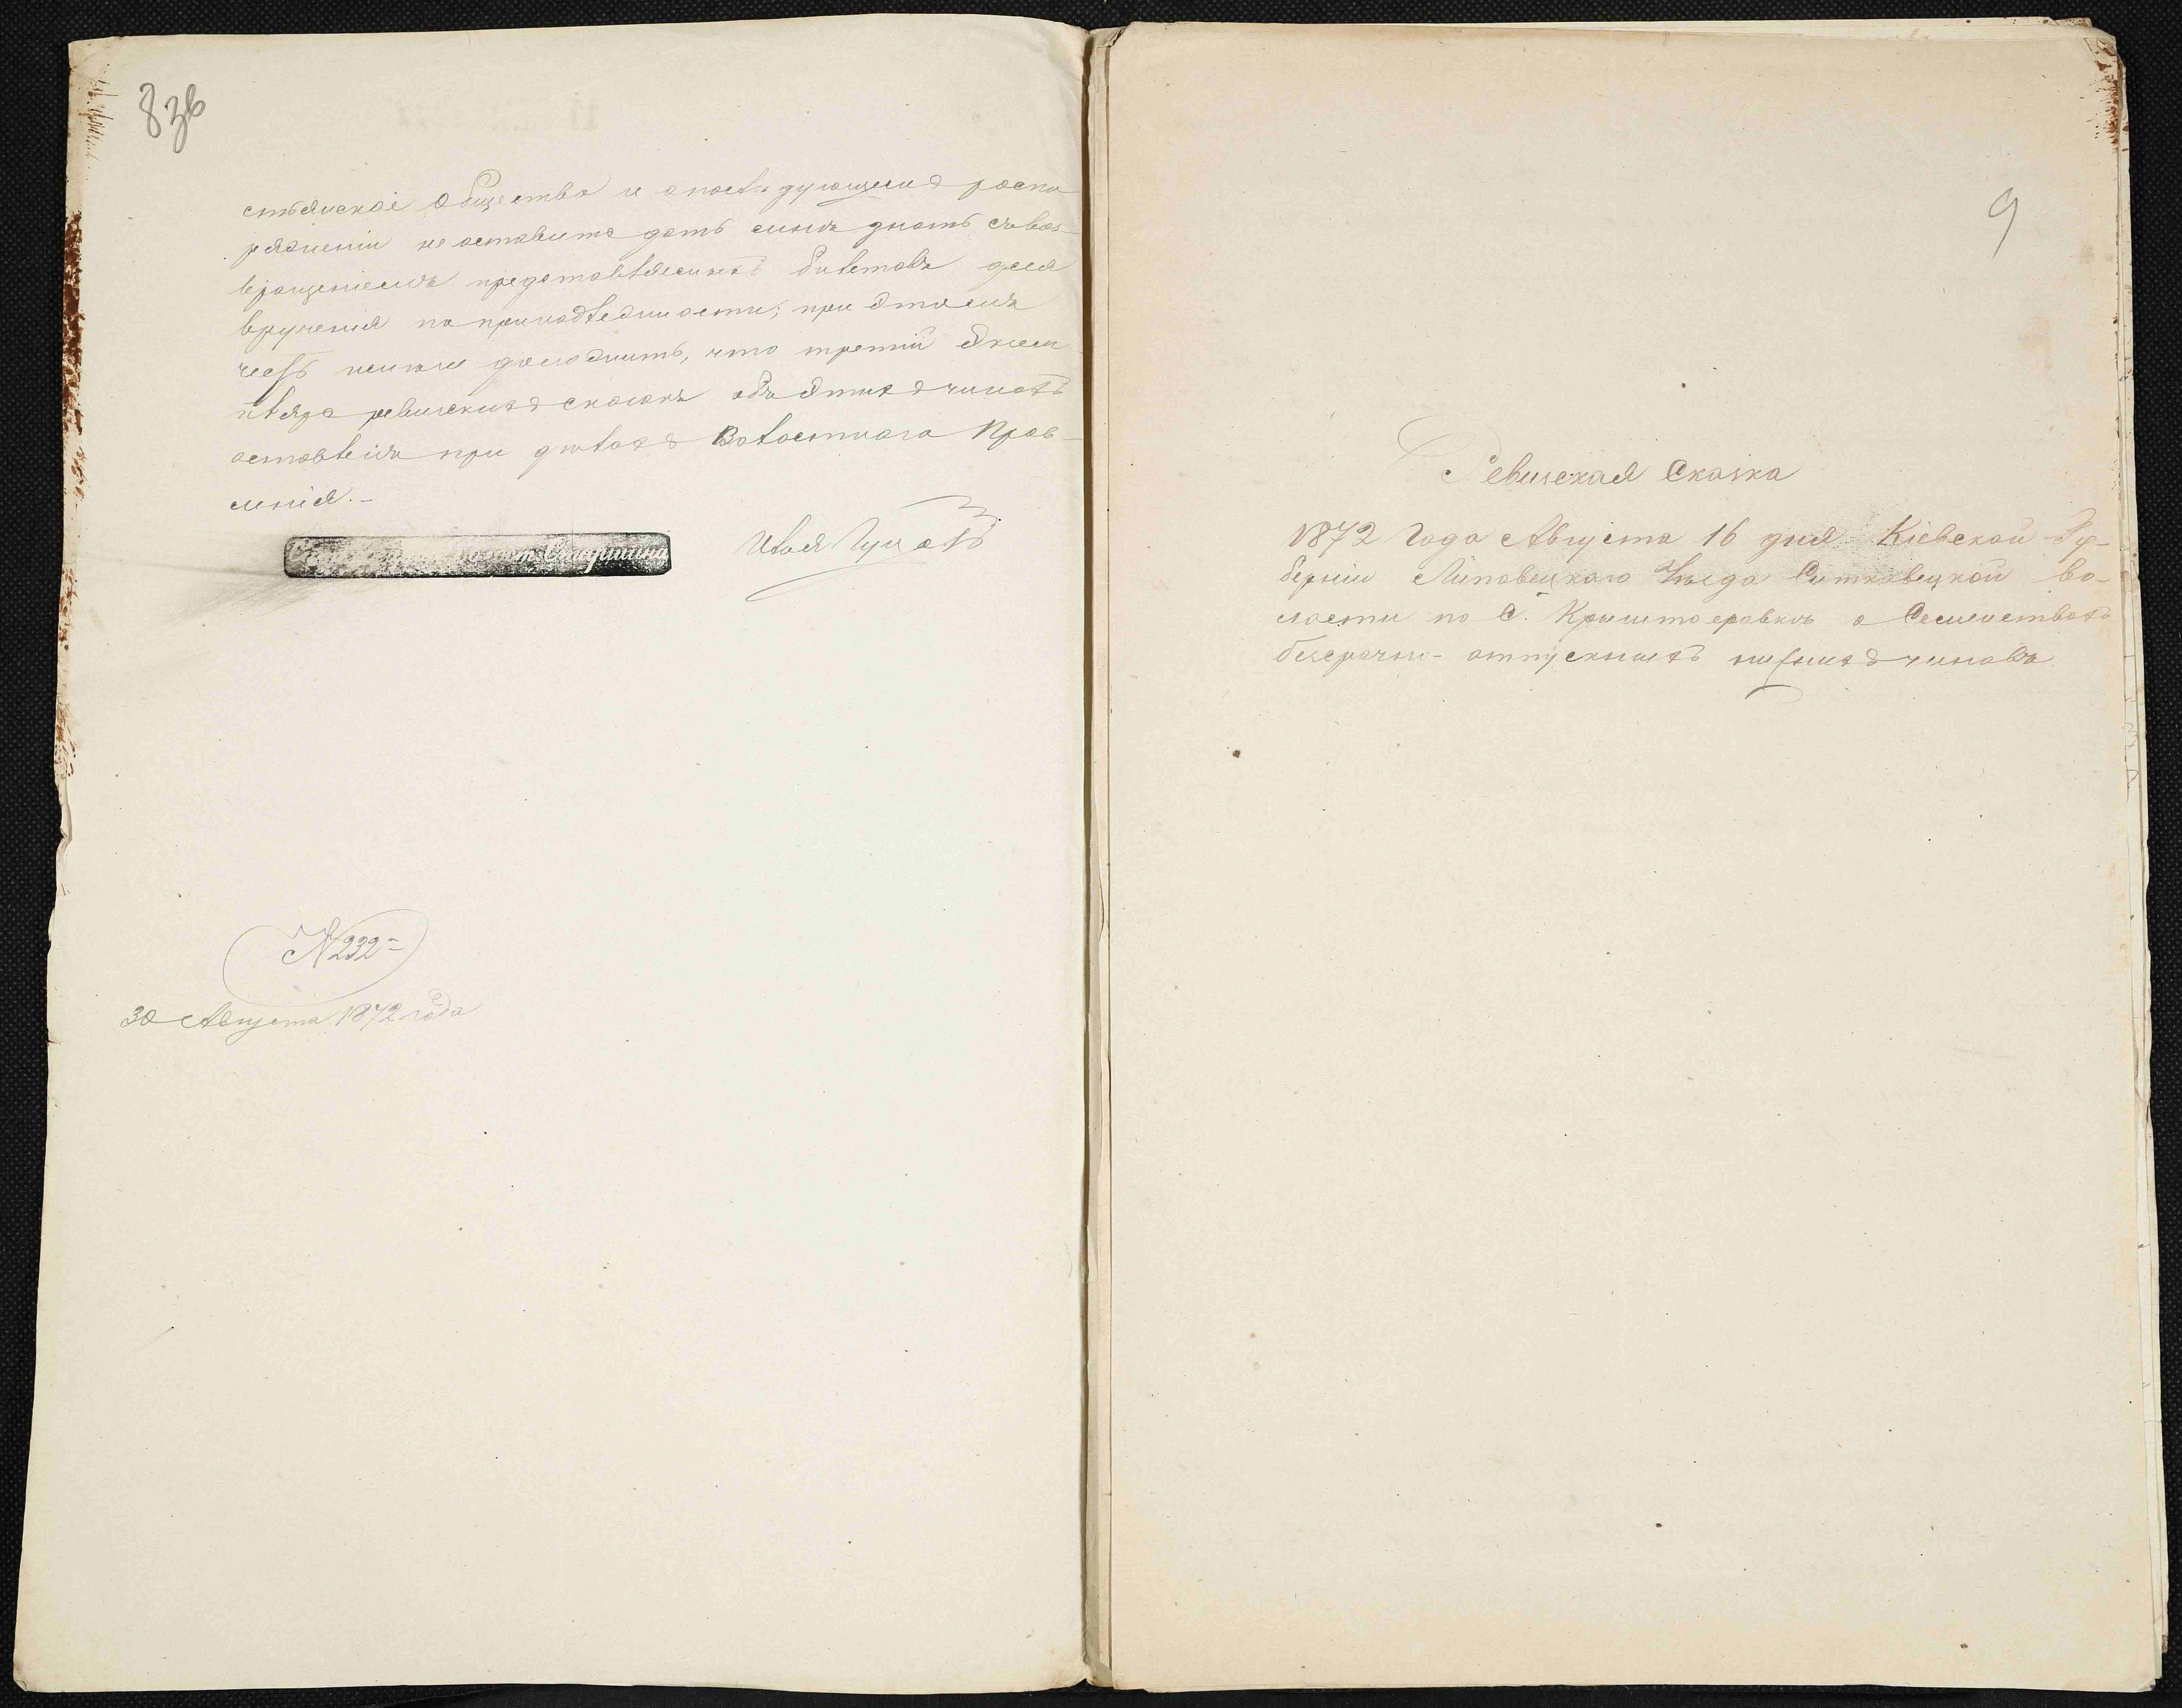 8зв
стьянское общество и о последующемъ распо
ряженіи не оставить дать симъ знать съ воз-
вращеніемъ представляемыхъ билетовъ для
врученія по принадлежности; при этомъ
честь имѣю доложить, что третій экзем
пляръ ревизскихъ сказокъ объ этихъ чинахъ
оставленъ при дѣлахъ Волостнаго Прав-
ленія.-
Старшина
№ 232-
30 Августа 1872 года
9
Ревизская Сказка
1872 Года Августа 16 дня Кіевской Гу-
берніи Липовецкаго Уѣзда Ситковецкой во-
лости по С. Криштоеровкѣ о Семействахъ
безсрочно-отпускныхъ нижнихъ чиновъ